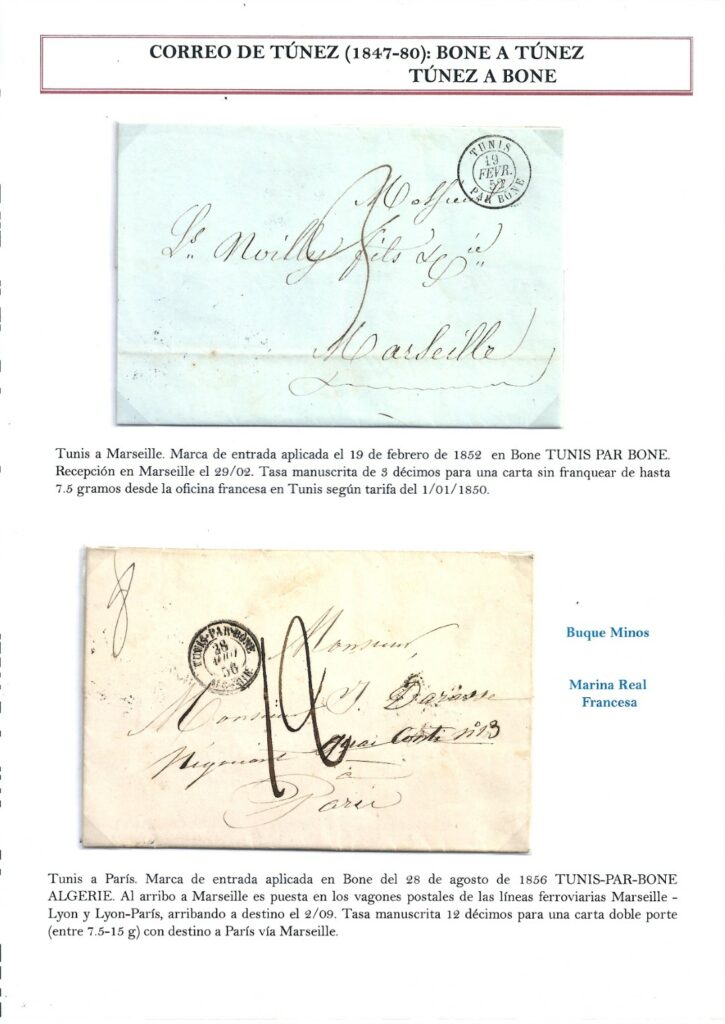 CORREO DE TÚNEZ (1847-80): BONE A TÚNEZ
TÚNEZ A BONE
TUNIS
19
FEVR.
52
PAR BONE
Monsieur
Ls. Noilly fils & Cie
Marseille
Tunis a Marseille. Marca de entrada aplicada el 19 de febrero de 1852 en Bone TUNIS PAR BONE.
Recepción en Marseille el 29/02. Tasa manuscrita de 3 décimos para una carta sin franquear de hasta
7.5 gramos desde la oficina francesa en Tunis según tarifa del 1/01/1850.
TUNIS-PAR-BONE
28
AOUT
56
ALGERIE
12
Monsieur,
Monsieur J.
Négociant Quai Conti n° 13
à
Paris
Buque Minos
Marina Real
Francesa
Tunis a París. Marca de entrada aplicada en Bone del 28 de agosto de 1856 TUNIS-PAR-BONE
ALGERIE. Al arribo a Marseille es puesta en los vagones postales de las líneas ferroviarias Marseille -
Lyon y Lyon-París, arribando a destino el 2/09. Tasa manuscrita 12 décimos para una carta doble porte
(entre 7.5-15 g) con destino a París vía Marseille.